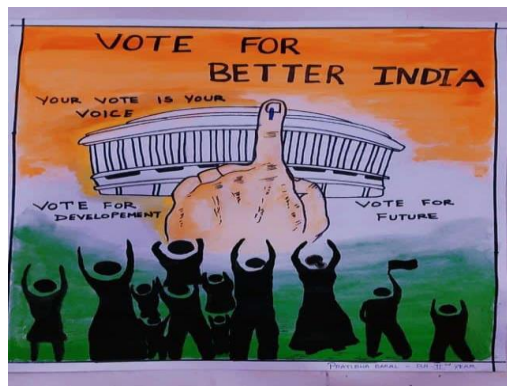 VOTE FOR
BETTER INDIA
YOUR VOTE IS YOUR
VOICE
VOTE FOR
DEVELOPEMENT
VOTE FOR
FUTURE
PRATIBHA BARAL - BA IInd YEAR